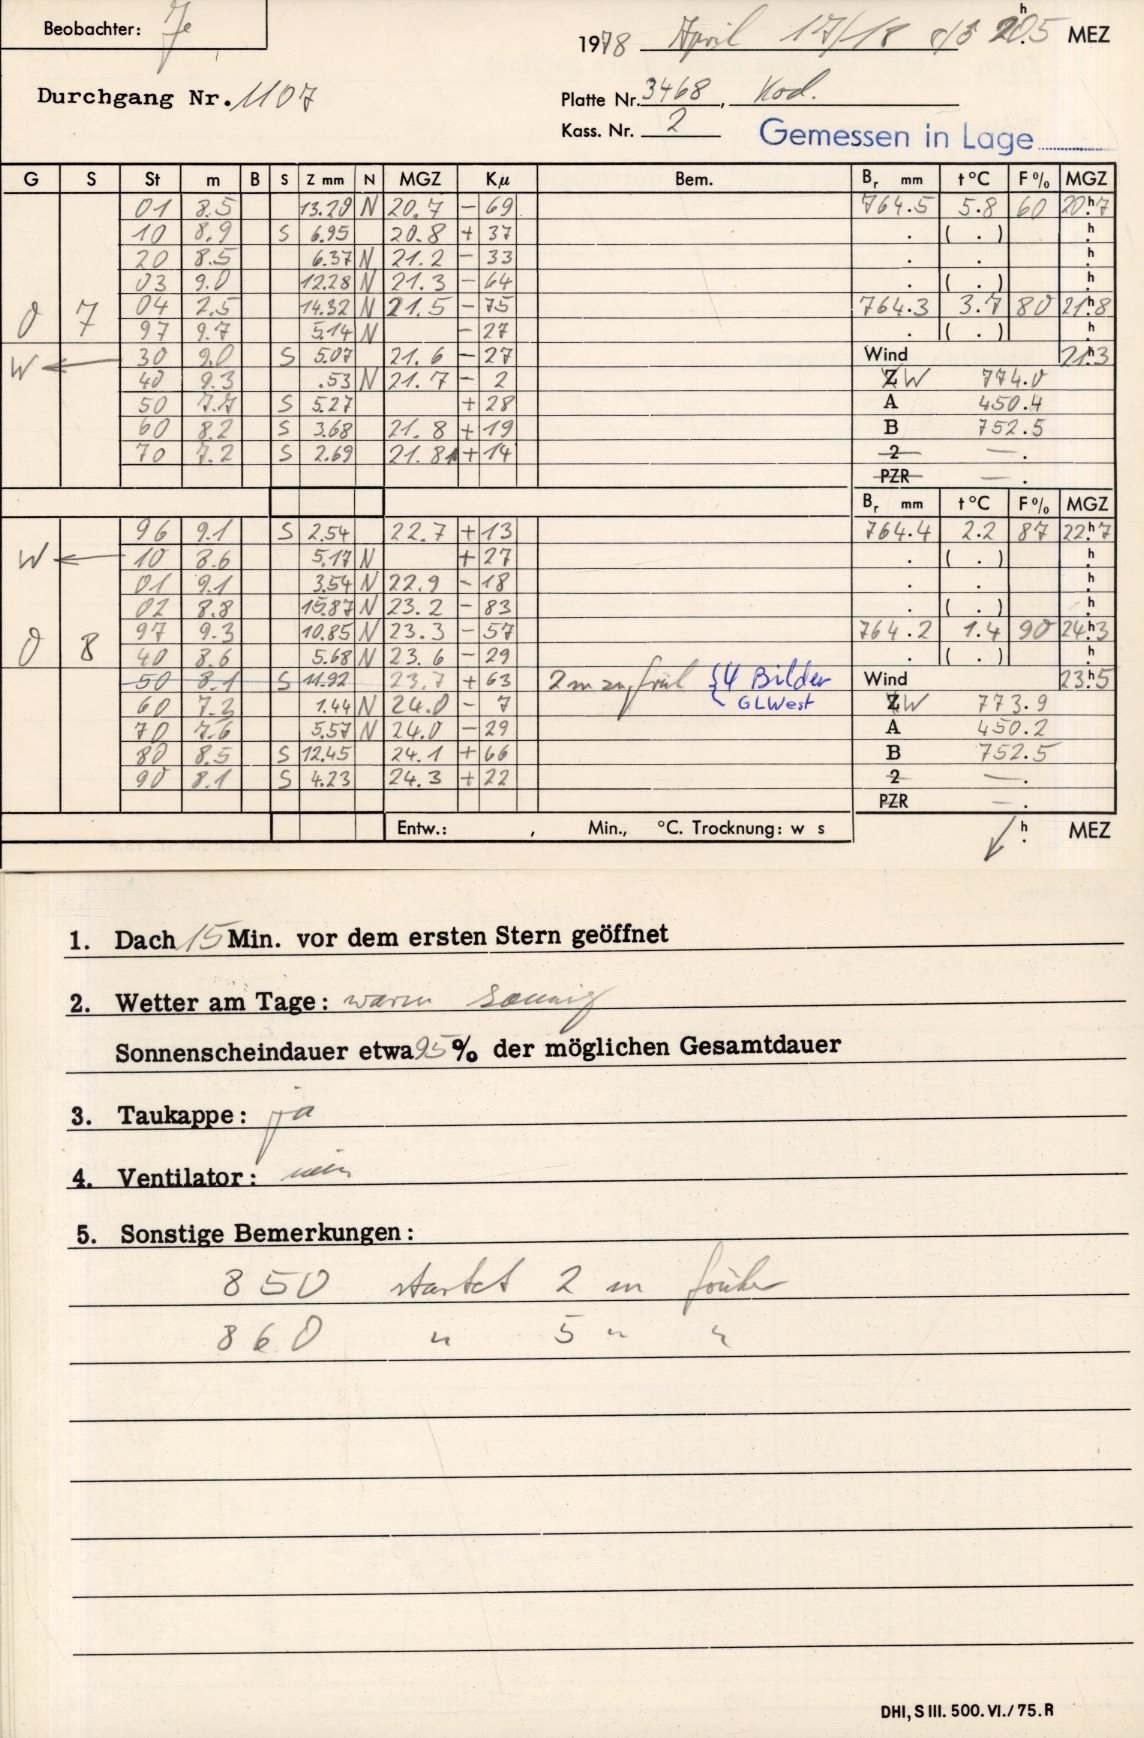 Beobachter: Je
1978 April 17/18 d/5 20h.5 MEZ
Durchgang Nr. 1107
Platte Nr. 3468, Kod.
Kass. Nr. 2
Gemessen in Lage
G S St m B S Z mm N MGZ Kμ Bem. Br mm t °C F % MGZ
01 8.5 13.29 N 20.7 - 69 764.5 5.8 60 20h.7
10 8.9 S 6.95 20.8 + 37 . ( . ) h.
20 8.5 6.37 N 21.2 - 33 . . h.
03 9.0 12.28 N 21.3 - 64 . ( . ) h.
O 7 04 2.5 14.32 N 21.5 - 75 764.3 3.7 80 21h.8
97 9.7 5.14 N - 27 . ( . ) h.
W ← 30 9.0 S 5.07 21.6 - 27 Wind 21h.3
40 9.3 .53 N 21.7 - 2 Z W 774.0
50 7.7 S 5.27 + 28 A 450.4
60 8.2 S 3.68 21.8 + 19 B 752.5
70 7.2 S 2.69 21.8 + 14 2 — .
PZR — .
Br mm t °C F % MGZ
96 9.1 S 2.54 22.7 + 13 764.4 2.2 87 22h.7
W ← 10 8.6 5.17 N + 27 . ( . ) h.
01 9.1 3.54 N 22.9 - 18 . . h.
02 8.8 15.87 N 23.2 - 83 . ( . ) h.
O 8 97 9.3 10.85 N 23.3 - 57 764.2 1.4 90 24h.3
40 8.6 5.68 N 23.6 - 29 . ( . ) h.
50 8.1 S 11.92 23.7 + 63 2 m zu früh { 4 Bilder Wind 23h.5
60 7.2 1.44 N 24.0 - 7 GL West Z W 773.9
70 7.6 5.57 N 24.0 - 29 A 450.2
80 8.5 S 12.45 24.1 + 66 B 752.5
90 8.1 S 4.23 24.3 + 22 2 — .
PZR — .
Entw.: , Min., °C. Trocknung: w s h. MEZ
1. Dach 15 Min. vor dem ersten Stern geöffnet
2. Wetter am Tage: warm sonnig
Sonnenscheindauer etwa 95 % der möglichen Gesamtdauer
3. Taukappe: ja
4. Ventilator: nein
5. Sonstige Bemerkungen:
850 startet 2 m früher
860 " 5 " "
DHI, S III. 500. VI./75. R